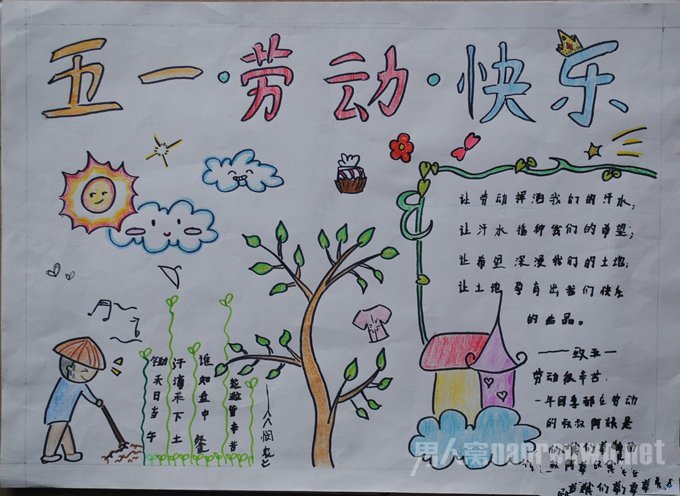 五一·劳动·快乐
让劳动挥洒我们的汗水;
让汗水播种我们的希望;
让希望深浸我们的土地;
让土地孕育出我们快乐
的出品。
——致五一
劳动很辛苦,
一年四季都在劳动
的叔叔阿姨是
锄禾日当午
汗滴禾下土
谁知盘中餐
粒粒皆辛苦
——《悯农》
男人窝nanrenwo.net